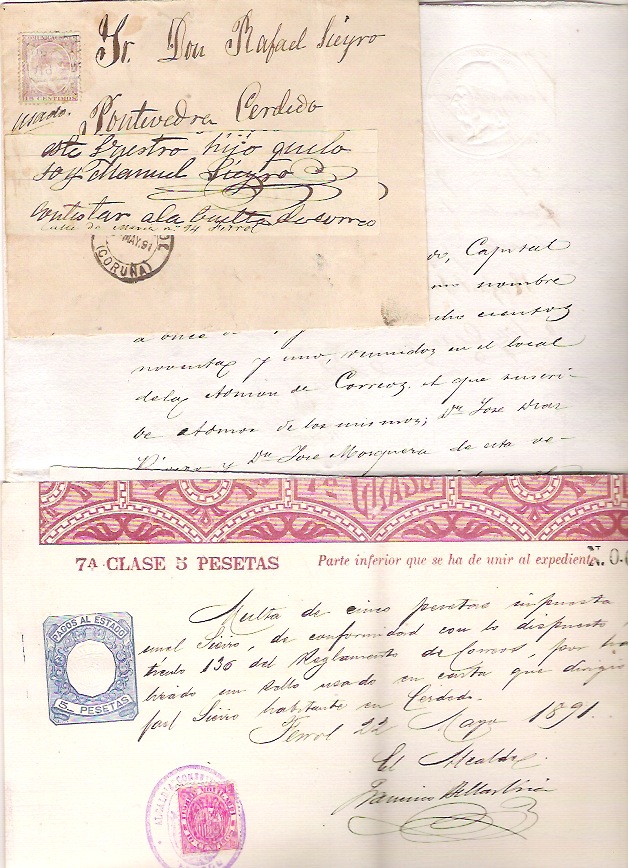 COMUNICACIONES
15 CENTIMOS
Sr. Don Rafael Sieyro
usado.
Pontevedra Cerdedo
este Luestro hijo quelo
soy Manuel Sieyro
Contestar ala buelta Socorreo
Calle de Maria nº 94 Ferrol
MAY. 91
(CORUÑA)
do, Capital
nombre
a once de cho cientos
noventa y uno, reunidos en el local
de la Admon de Correos, el que suscri-
be Admor de los mismos; Dn Jose Diaz
y Dn Jose Mosquera de esta ve-
7A CLASE
7A CLASE 5 PESETAS
Parte inferior que se ha de unir al expediente
N. 0.
PAGOS AL ESTADO
5 PESETAS
Multa de cinco pesetas impuesta
nuel Sieiro, de conformidad con lo dispuesto
tículo 136 del Reglamento de Correos, por ha
un sello usado en carta que dirigió
fael Sieiro habitante en Cerdedo.
Ferrol 22 Mayo 1891.
El Alcalde
ALCALDIA CONST
10 CENTIMOS